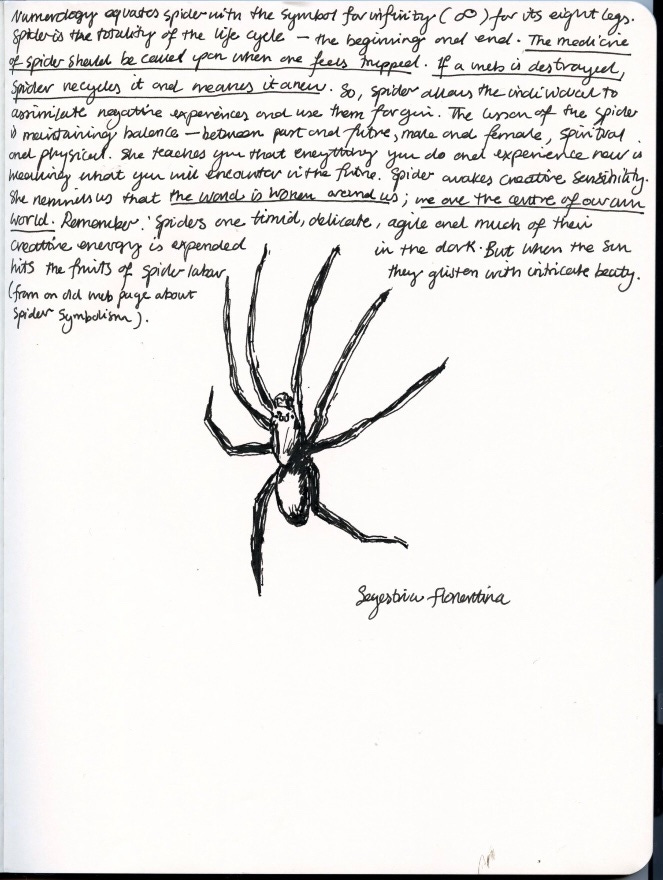 Numerology equates spider with the symbol for infinity (∞) for its eight legs.
Spider is the totality of the life cycle — the beginning and end. The medicine
of spider should be called upon when one feels trapped. If a web is destroyed,
spider recycles it and weaves it anew. So, spider allows the individual to
assimilate negative experiences and use them for gain. The lesson of the spider
is maintaining balance — between past and future, male and female, spiritual
and physical. She teaches you that everything you do and experience now is
weaving what you will encounter in the future. Spider awakes creative sensibility.
She reminds us that the world is woven around us; we are the centre of our own
world. Remember: Spiders are timid, delicate, agile and much of their
creative energy is expended in the dark. But when the sun
hits the fruits of spider labor they glisten with intricate beauty.
(from an old web page about
Spider Symbolism).
Segestria florentina